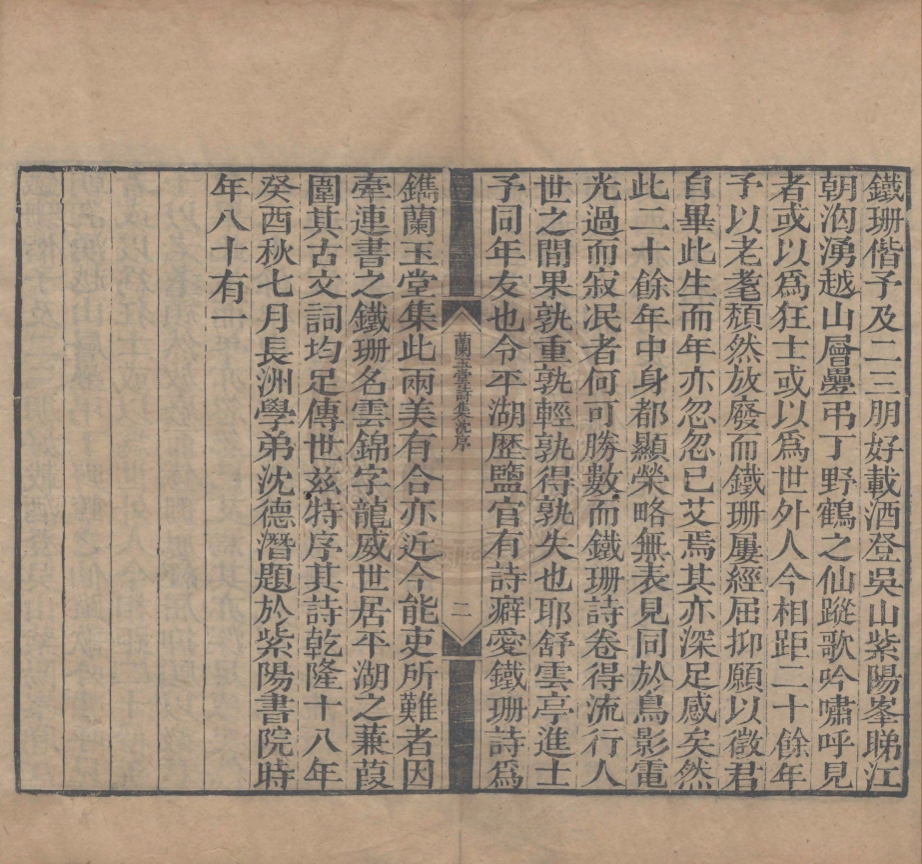 鐵珊偕予及二三朋好載酒登吳山紫陽峯睇江
朝洶湧越山層疊弔丁野鶴之仙蹤歌吟嘯呼見
者或以爲狂士或以爲世外人今相距二十餘年
予以老耄頹然放廢而鐵珊屢經屈抑願以徵君
自畢此生而年亦忽忽已艾焉其亦深足感矣然
此二十餘年中身都顯榮略無表見同於鳥影電
光過而寂泯者何可勝數而鐵珊詩卷得流行人
世之間果孰重孰輕孰得孰失也耶舒雲亭進士
予同年友也令平湖歷鹽官有詩癖愛鐵珊詩爲
蘭玉堂詩集沈序
二
鐫蘭玉堂集此兩美有合亦近今能吏所難者因
牽連書之鐵珊名雲錦字龍威世居平湖之蒹葭
圍其古文詞均足傳世茲特序其詩乾隆十八年
癸酉秋七月長洲學弟沈德潛題於紫陽書院時
年八十有一